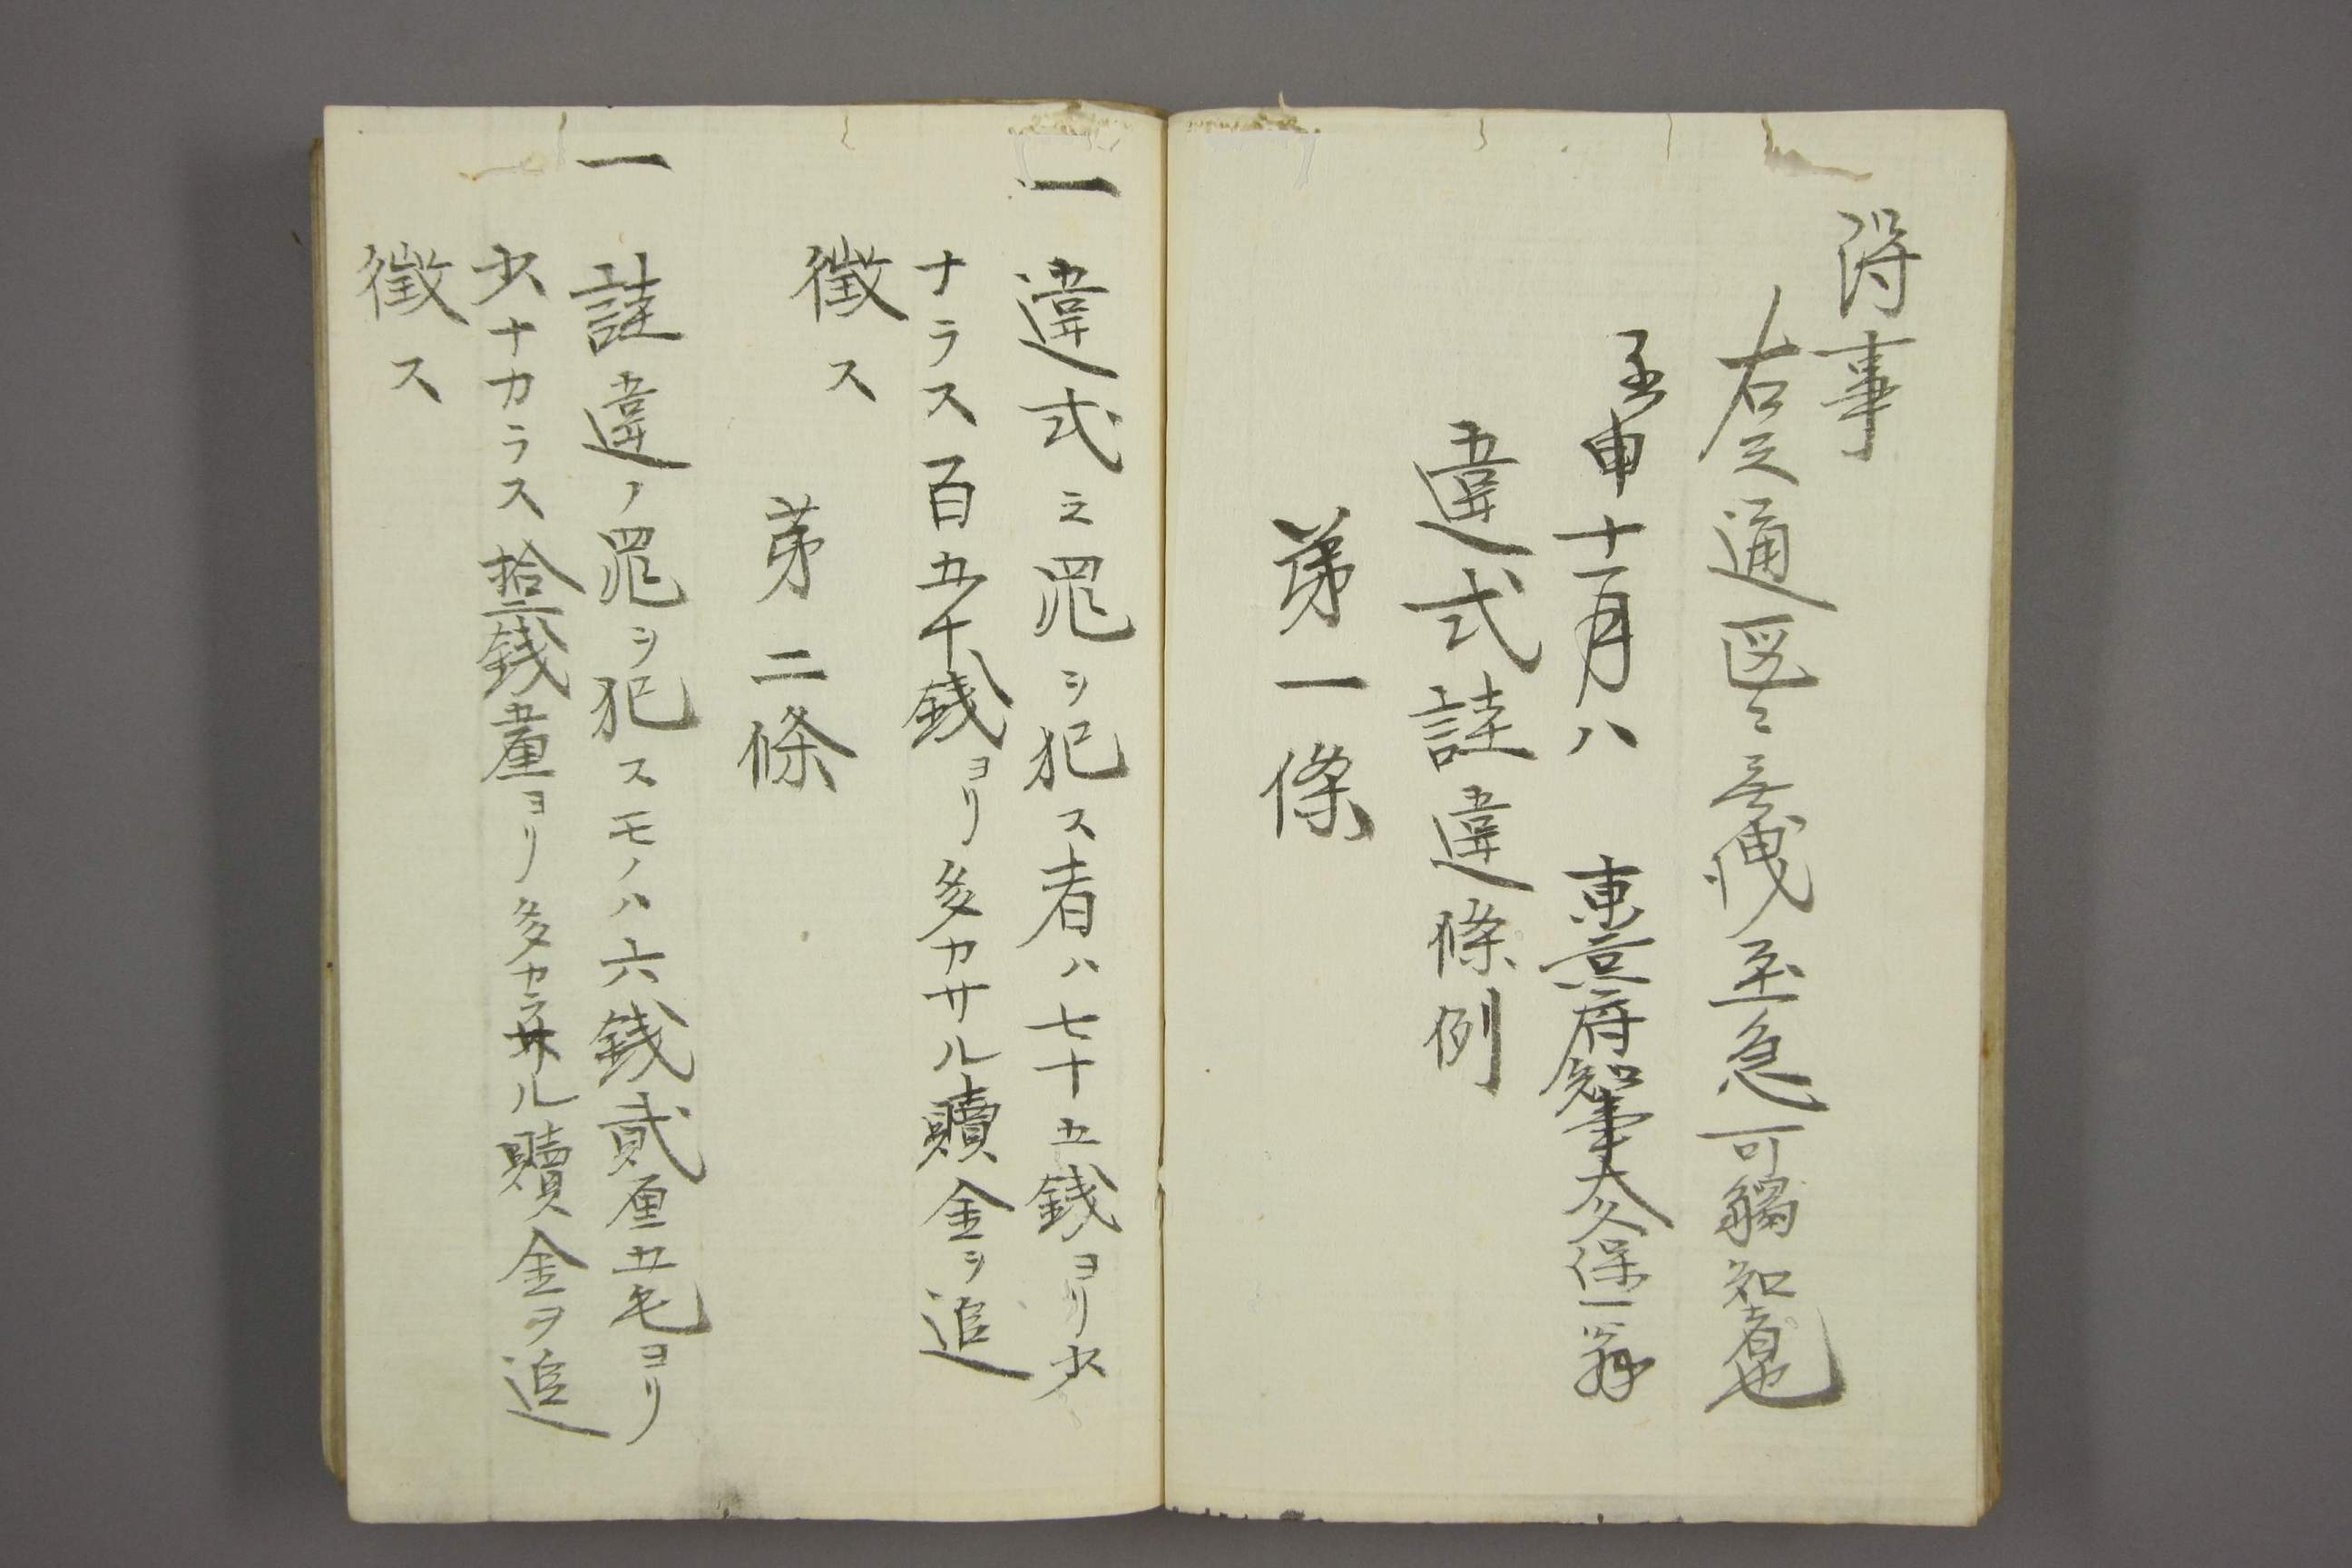 得事
右之通区々無洩至急可觸知者也
壬申十一月八 東亰府知事大久保一翁
違式詿違條例
第一條
一 違式之罪ヲ犯ス者ハ七十五銭ヨリ少
ナラス百五十銭ヨリ多カサル贖金ヲ追
徴ス
第二條
一 詿違ノ罪ヲ犯スモノハ六銭貳厘五毛ヨリ
少ナカラス拾二銭五厘ヨリ多カラサル贖金ヲ追
徴ス